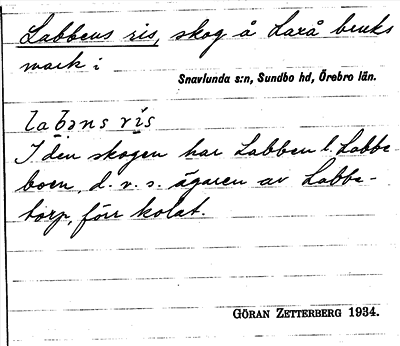 Labbens ris, skog å Laxå bruks
mark i
Snavlunda s:n, Sundbo hd, Örebro län.
labəns ris
I den skogen har Labben l. Labbe
boen, d. v. s. ägaren av Labbe-
torp, förr kolat.
GÖRAN ZETTERBERG 1934.